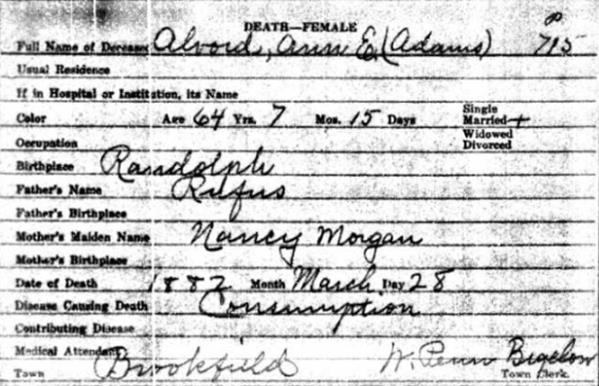 DEATH—FEMALE
Full Name of Deceased Alvord, Ann E. (Adams) P 715
Usual Residence
If in Hospital or Institution, its Name
Color Age 64 Yrs. 7 Mos. 15 Days Single
Married +
Widowed
Divorced
Occupation
Birthplace Randolph
Father's Name Rufus
Father's Birthplace
Mother's Maiden Name Nancy Morgan
Mother's Birthplace
Date of Death 1882 Month March Day 28
Disease Causing Death Consumption
Contributing Disease
Medical Attendant
Town Brookfield W. Penn Bigelow Town Clerk.